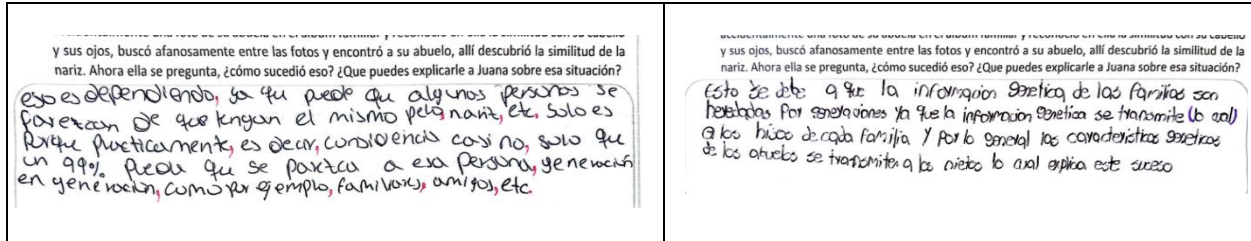 y sus ojos, buscó afanosamente entre las fotos y encontró a su abuelo, allí descubrió la similitud de la
nariz. Ahora ella se pregunta, ¿cómo sucedió eso? ¿Que puedes explicarle a Juana sobre esa situación?
eso es dependiendo, ya qu puede qu algunos personas se
parezcan de que tengan el mismo pelo, nariz, etc. Solo es
Porque practicamente, es decir, coinsidencia casi no, solo que
un 99% puede qu se parzca a esa persona, generación
en generación, como por ejemplo, familiares, amigos, etc.
y sus ojos, buscó afanosamente entre las fotos y encontró a su abuelo, allí descubrió la similitud de la
nariz. Ahora ella se pregunta, ¿cómo sucedió eso? ¿Que puedes explicarle a Juana sobre esa situación?
Esto se debe a que la informacion Genetica de las familias son
heredadas Por generaciones Ya que la informacion Genetica se transmite (lo cual)
a los hijos de cada familia Y por lo general las caracteristicas geneticas
de los abuelos se transmiten a los nietos lo cual explica este suceso